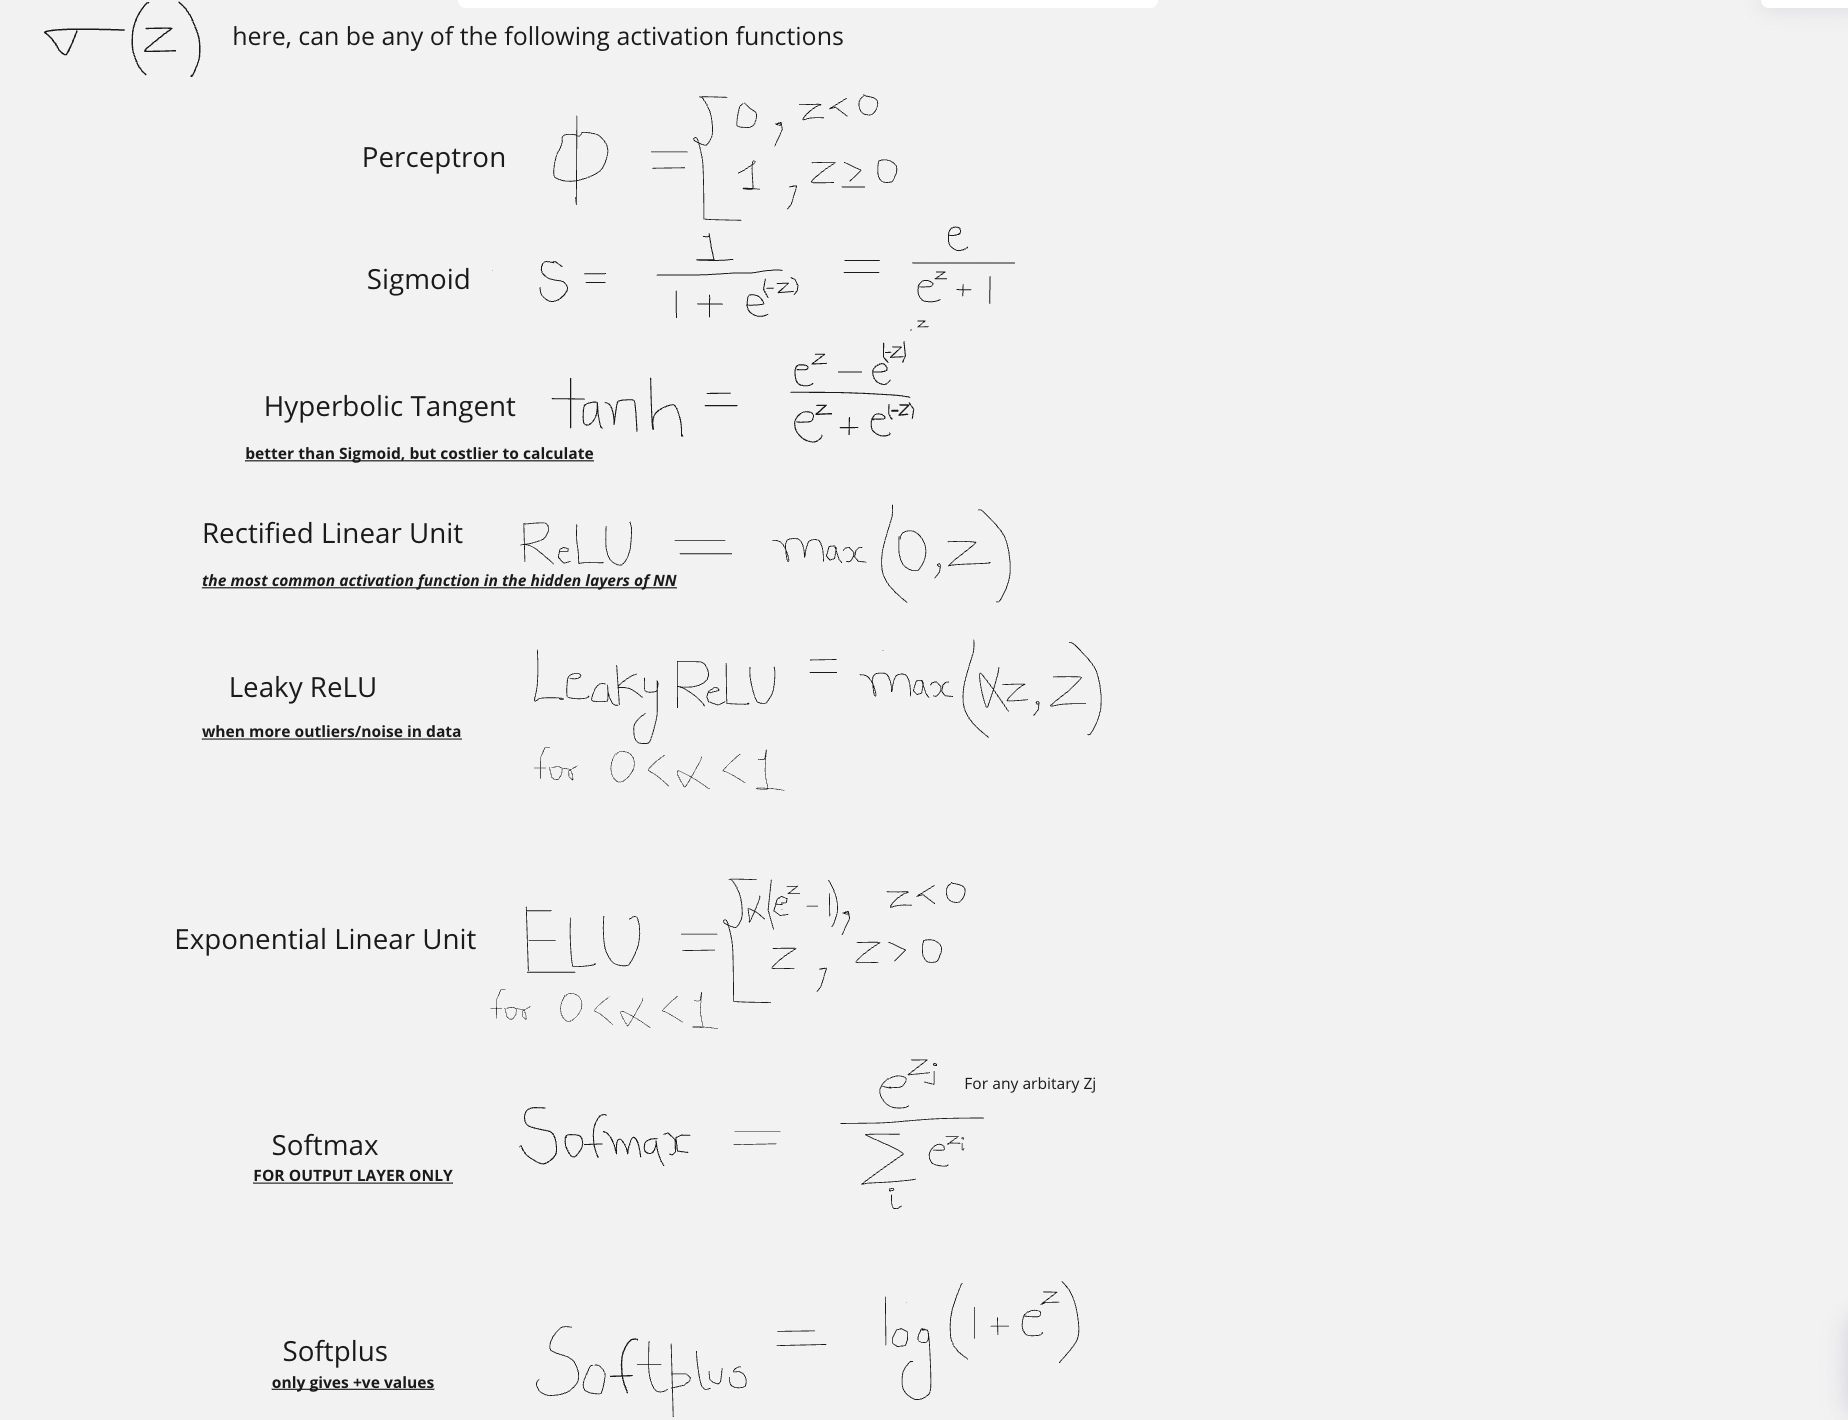 σ(z) here, can be any of the following activation functions
Perceptron ϕ = [ 0, z<0
1, z≥0
Sigmoid S = 1 / (1 + e^(-z)) = e / (e^z + 1)
z
Hyperbolic Tangent tanh = (e^z - e^(-z)) / (e^z + e^(-z))
better than Sigmoid, but costlier to calculate
Rectified Linear Unit ReLU = max(0,z)
the most common activation function in the hidden layers of NN
Leaky ReLU Leaky ReLU = max(αz, z)
when more outliers/noise in data
for 0<α<1
Exponential Linear Unit ELU = [ α(e^z - 1), z<0
z, z>0
for 0<α<1
Softmax Sofmax = e^zj / Σ_i e^zi For any arbitary Zj
FOR OUTPUT LAYER ONLY
Softplus Softplus = log(1+e^z)
only gives +ve values